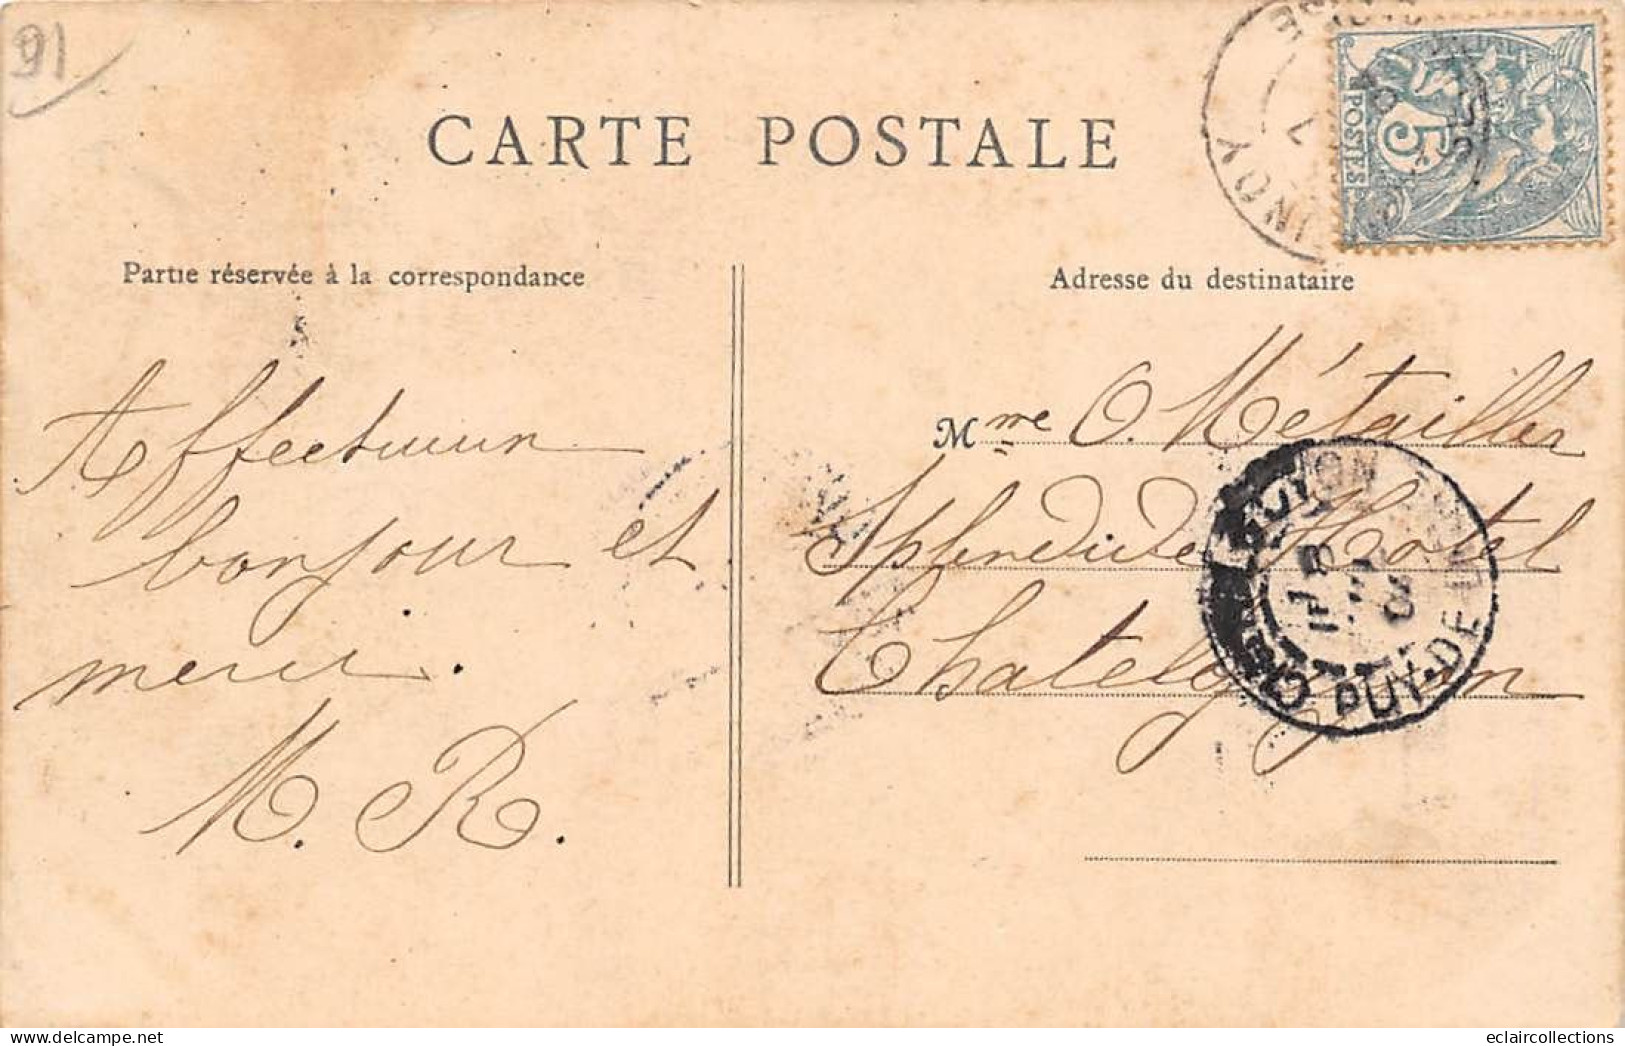 91
CARTE POSTALE
5
POSTES
Partie réservée à la correspondance
Adresse du destinataire
Affectueux
bonjour et
merci.
M. R.
Mme O. Métailler
Splendide Hotel
Chatelguyon
PUY-DE-DOME
www.delcampe.net
eclaircollections